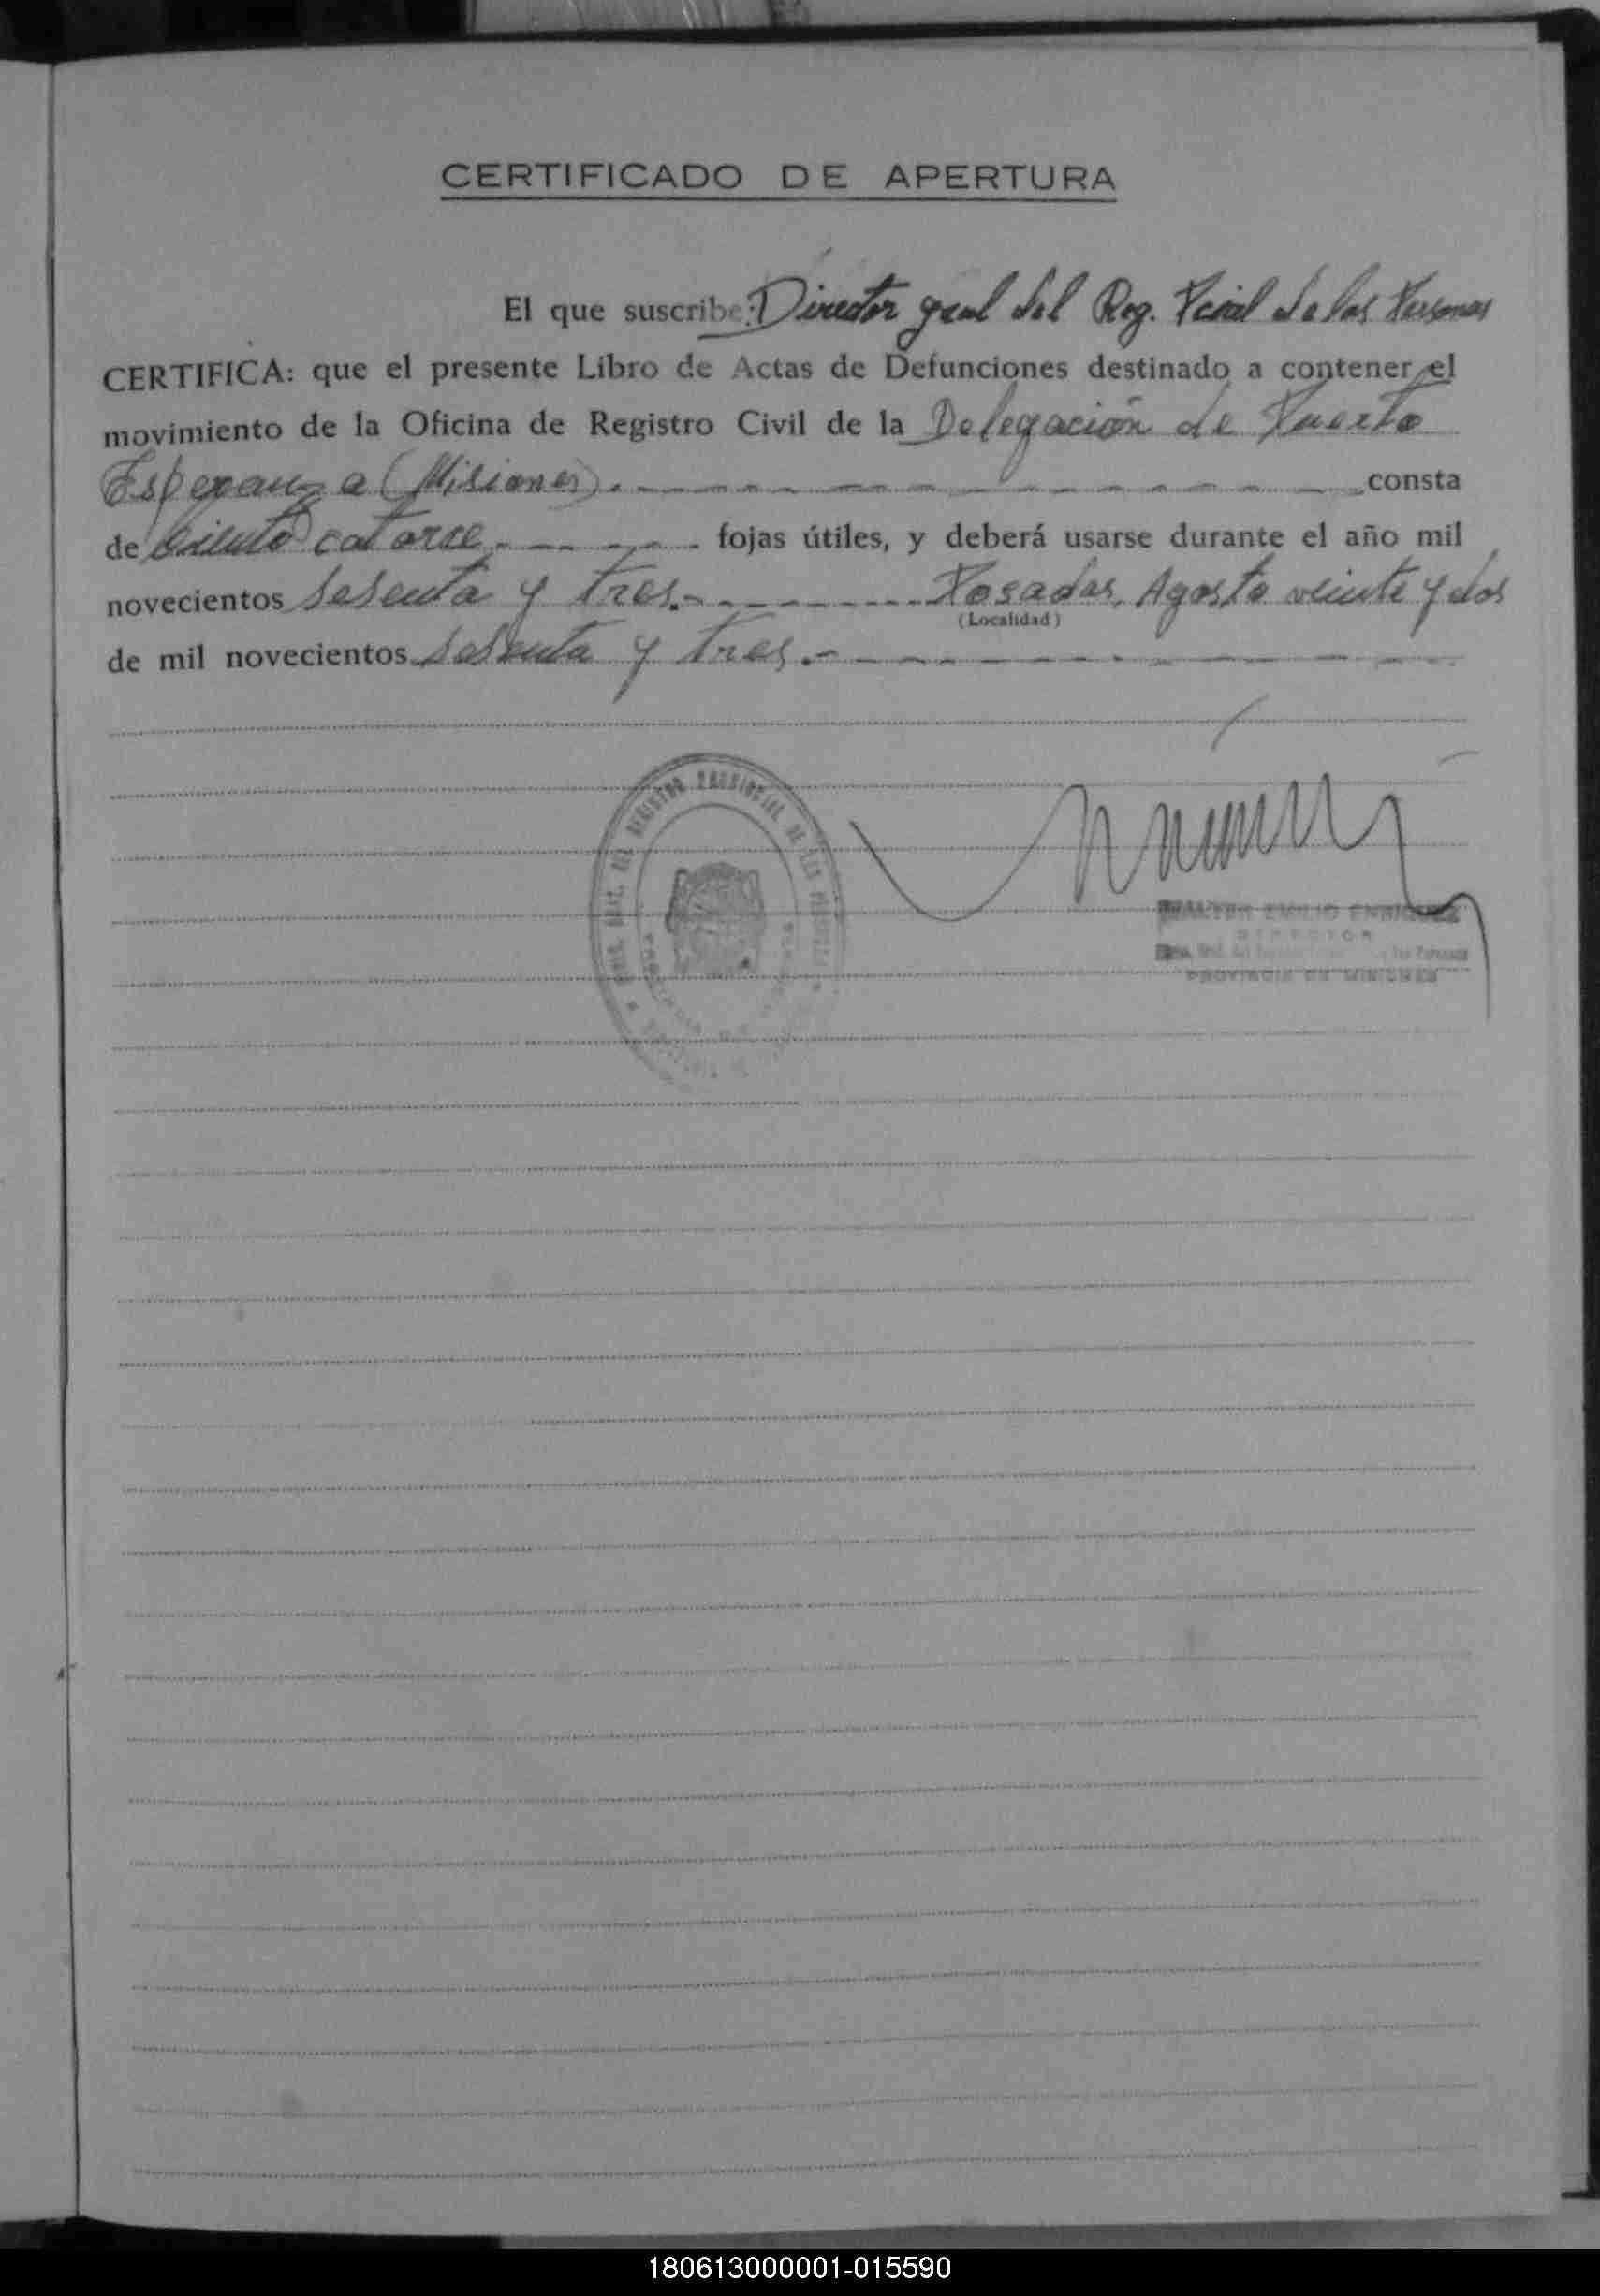 CERTIFICADO DE APERTURA
El que suscribe: Director gral del Reg. Pcial de las Personas
CERTIFICA: que el presente Libro de Actas de Defunciones destinado a contener el
movimiento de la Oficina de Registro Civil de la Delegación de Puerto
Esperanza (Misiones).- consta
de ciento catorce.- fojas útiles, y deberá usarse durante el año mil
novecientos sesenta y tres.- Posadas, Agosto veinte y dos
(Localidad)
de mil novecientos sesenta y tres.-
GRAL. DEL REGISTRO PROVINCIAL DE LAS PERSONAS
WALTER EMILIO ENRIQUEZ
DIRECTOR
PROVINCIA DE MISIONES
180613000001-015590